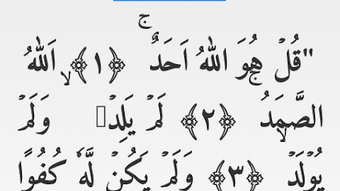 "قُلْ هُوَ اللّٰهُ اَحَدٌ ۚ ﴿١﴾ اَللّٰهُ
الصَّمَدُ ۚ ﴿٢﴾ لَمْ يَلِدْ ۙ وَلَمْ
يُوْلَدْ ۙ ﴿٣﴾ وَلَمْ يَكُنْ لَّهٗ كُفُوًا